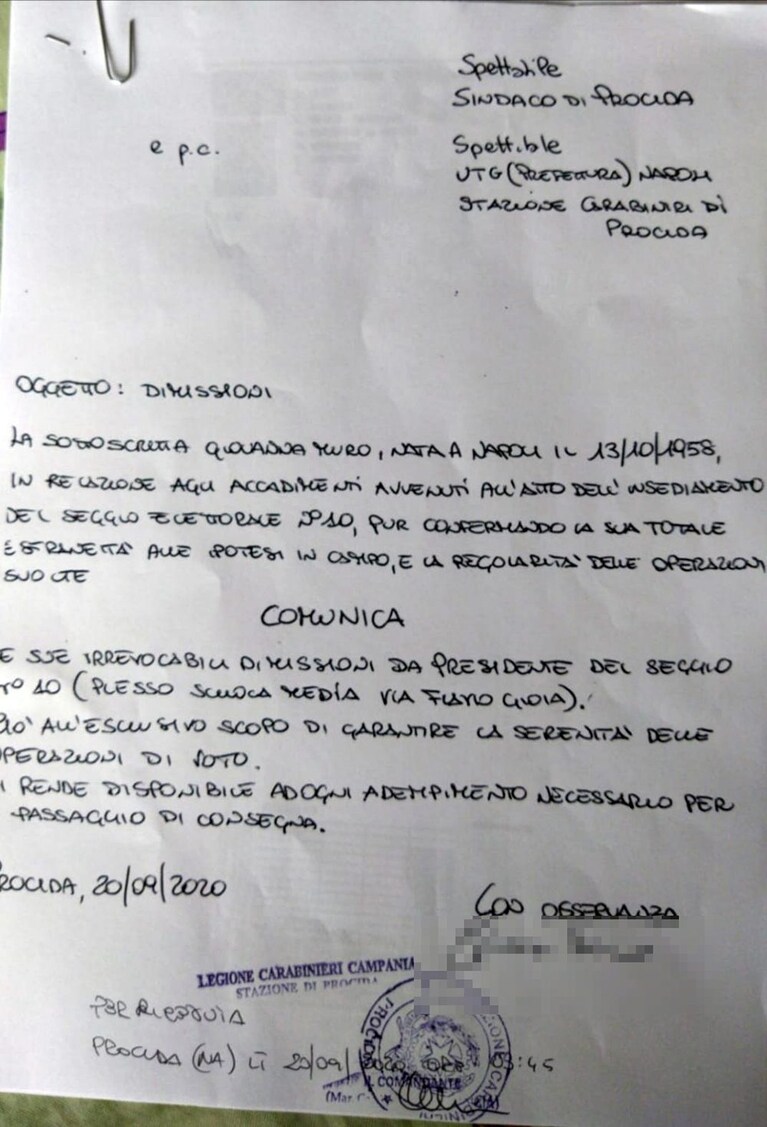 Spettabile
SINDACO DI PROCIDA
e p.c.
Spett.ble
UTG (PREFETTURA) NAPOLI
STAZIONE CARABINIERI DI
PROCIDA
OGGETTO: DIMISSIONI
LA SOTTOSCRITTA GIOVANNA MURO, NATA A NAPOLI IL 13/10/1958,
IN RELAZIONE AGLI ACCADIMENTI AVVENUTI ALL'ATTO DELL'INSEDIAMENTO
DEL SEGGIO ELETTORALE N°10, PUR CONFERMANDO LA SUA TOTALE
ESTRANEITÀ ALLE IPOTESI IN CAMPO, E LA REGOLARITÀ DELLE OPERAZIONI
SVOLTE
COMUNICA
E SUE IRREVOCABILI DIMISSIONI DA PRESIDENTE DEL SEGGIO
N° 10 (PLESSO SCUOLA MEDIA VIA FLAVIO GIOIA).
CIÒ ALL'ESCLUSIVO SCOPO DI GARANTIRE LA SERENITÀ DELLE
OPERAZIONI DI VOTO.
I RENDE DISPONIBILE AD OGNI ADEMPIMENTO NECESSARIO PER
PASSAGGIO DI CONSEGNA.
PROCIDA, 20/09/2020
CON OSSERVANZA
LEGIONE CARABINIERI CAMPANIA
STAZIONE DI PROCIDA
PER RICEVUTA
PROCIDA (NA) LÌ 20/09/2020 ORE :45
IL COMANDANTE
(Mar. C